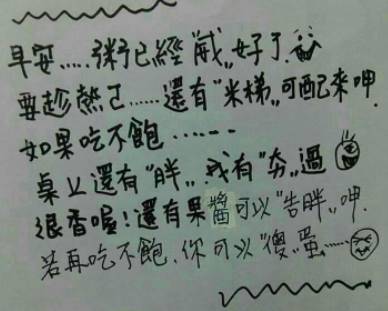 早安.....粥已經""好了.
要趁熱ㄛ......還有"米梯"可配來呷.
如果吃不飽......
桌上還有"胖"我有"夯"過
很香喔!還有果醬可以"告胖"呷.
若再吃不飽.你可以"傻"蛋......